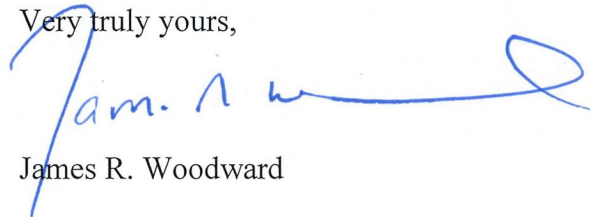 Very truly yours,
James R. Woodward